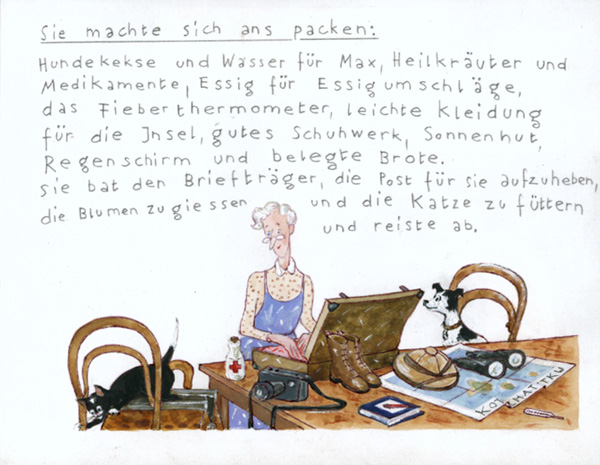 Sie machte sich ans packen:
Hundekekse und Wasser für Max, Heilkräuter und
Medikamente, Essig für Essigumschläge,
das Fieberthermometer, leichte Kleidung
für die Insel, gutes Schuhwerk, Sonnenhut,
Regenschirm und belegte Brote.
Sie bat den Briefträger, die Post für sie aufzuheben,
die Blumen zu giessen und die Katze zu füttern
und reiste ab.